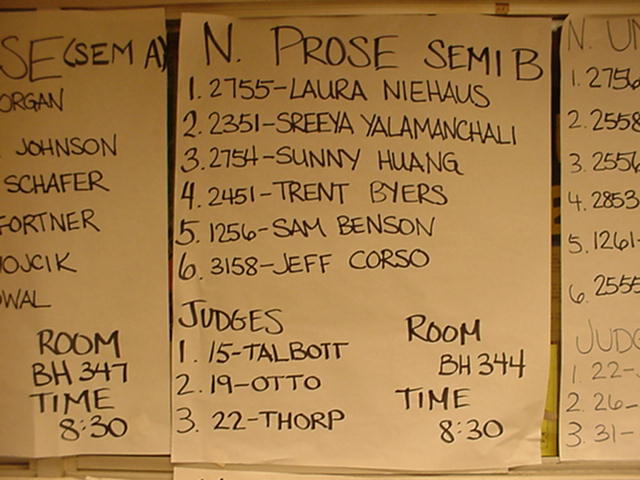 SE (SEM A)
ORGAN
JOHNSON
SCHAFER
FORTNER
OJCIK
WAL
ROOM
BH 347
TIME
8:30
N. PROSE SEMI B
1. 2755-LAURA NIEHAUS
2. 2351-SREEYA YALAMANCHALI
3. 2754-SUNNY HUANG
4. 2451-TRENT BYERS
5. 1256-SAM BENSON
6. 3158-JEFF CORSO
JUDGES
1. 15-TALBOTT
2. 19-OTTO
3. 22-THORP
ROOM
BH 344
TIME
8:30
N. UN
1. 2756
2. 2558
3. 2556
4. 2853
5. 1261-
6. 2555
JUDG
1. 22-
2. 26-
3. 31-